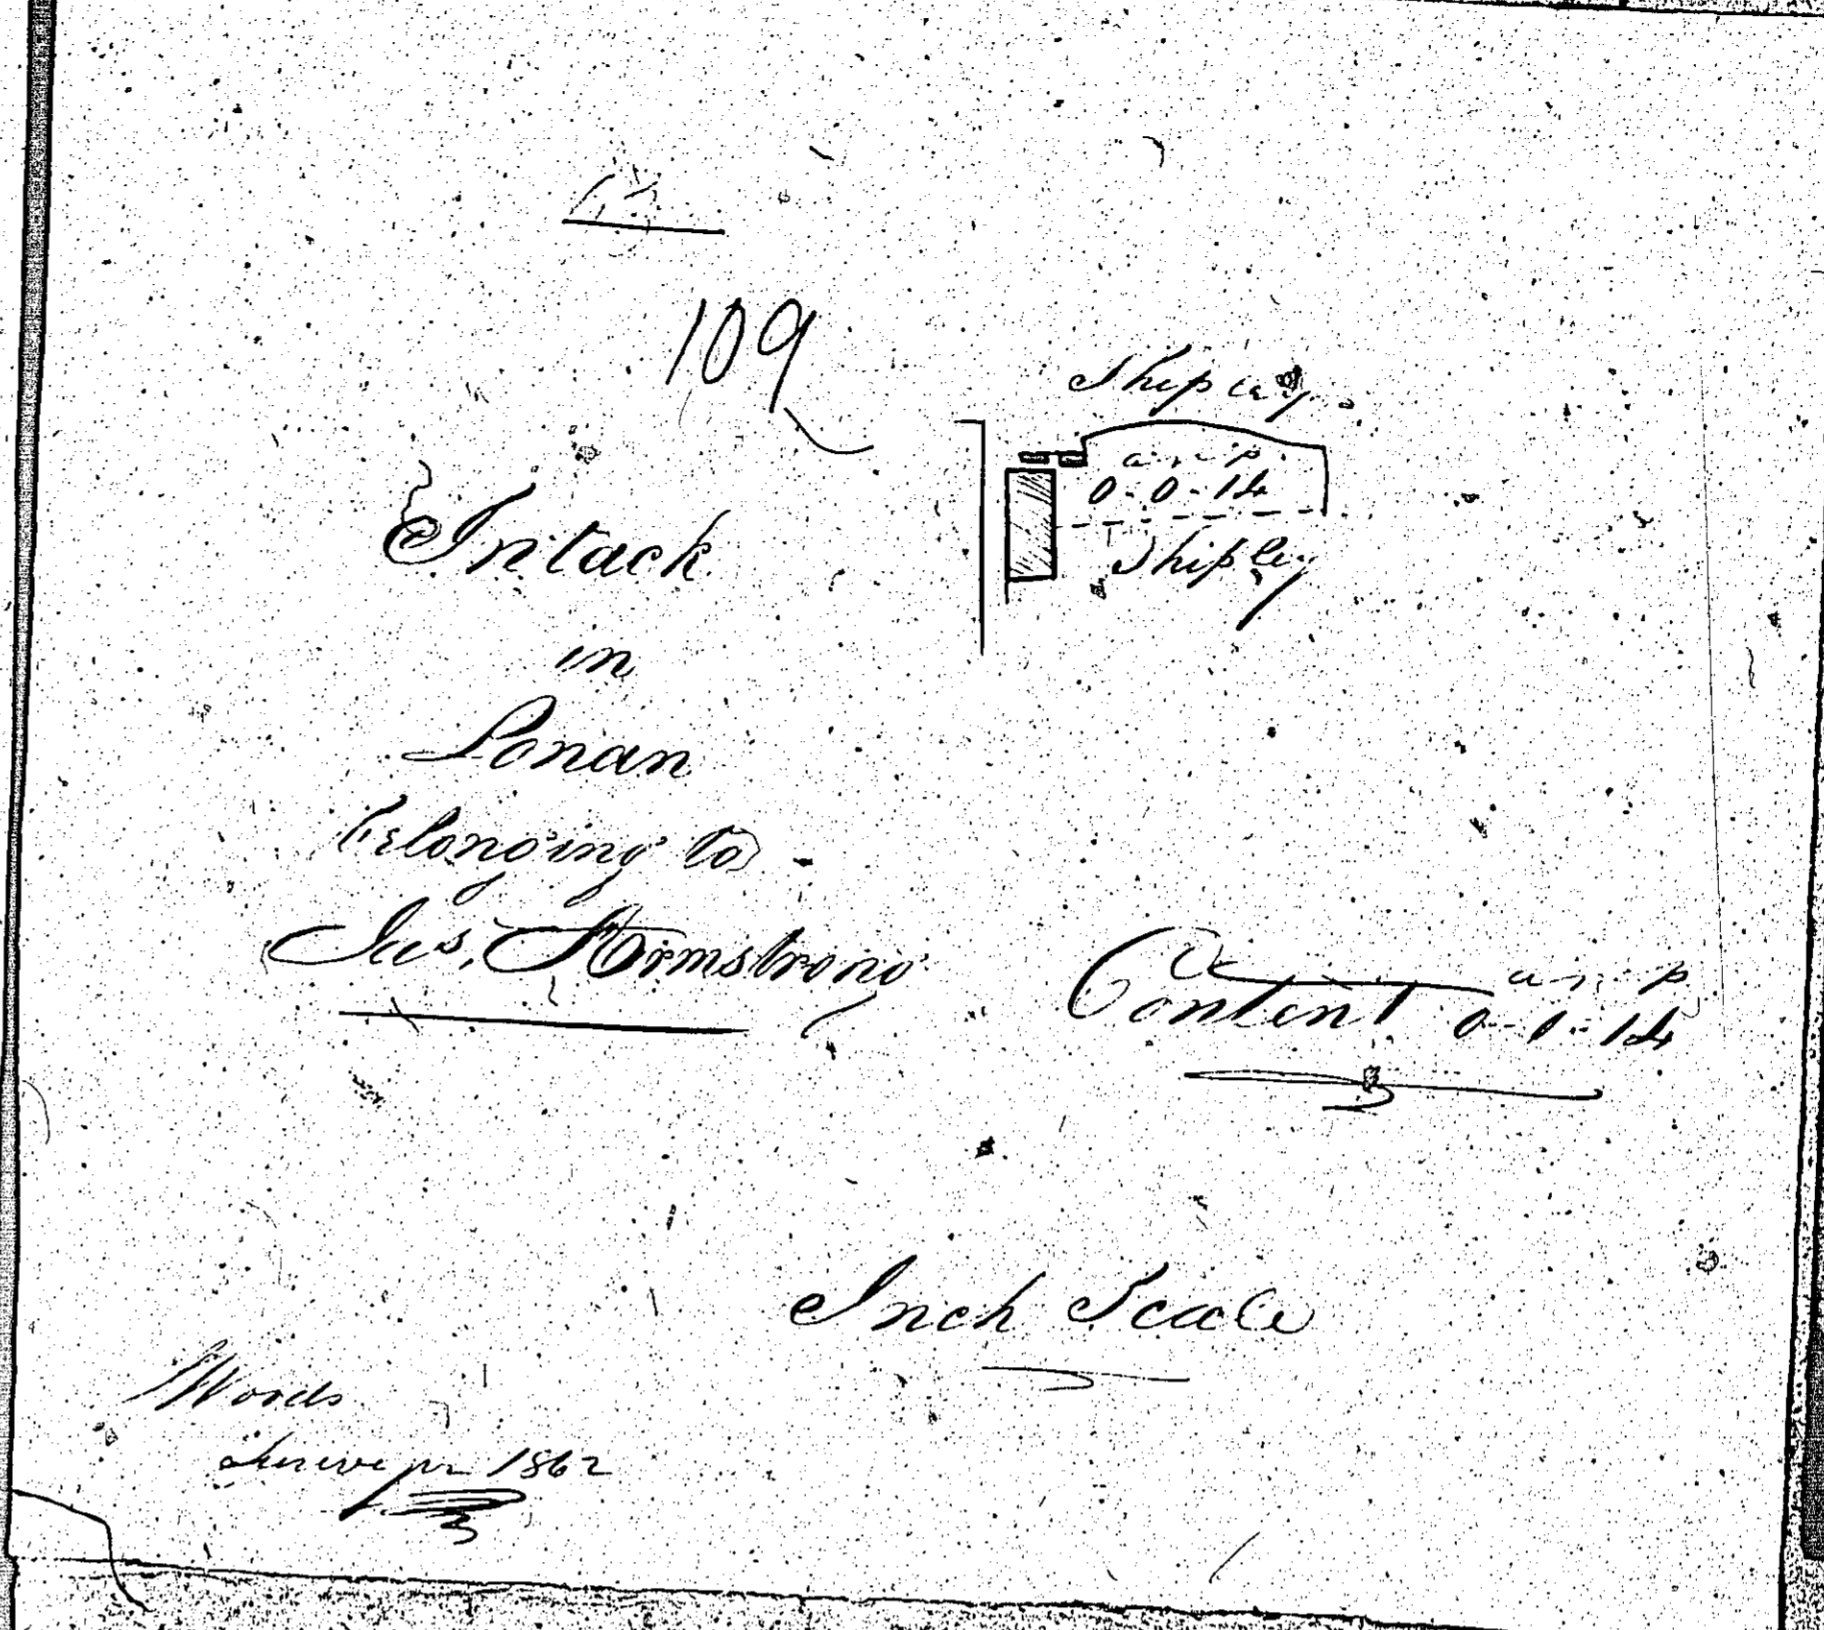 109
Shipley
a r p
0-0-14
Shipley
Intack
in
Lonan
belonging to
Jas, Armstrong
a r p
Content 0-0-14
Inch Scale
Woods
Surveyor 1862